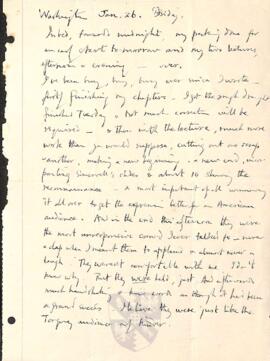 Washington Jan. 26. Friday.
In bed, towards midnight, my packing done for
an early start tomorrow and my two lectures,
afternoon & evening — over.
I've been busy, busy, busy ever since I wrote —
firstly finishing my chapters. I got the rough draft
finished Tuesday & not much correction will be
required — & then with the lectures, much more
work than you would suppose, cutting out one
another, making a new beginning, a new end,
Sinerell's slides & almost to
reconnaissance — a most important of all
it all over to get the expression better for an American
audience. And in the end this afternoon they were
the most unresponsive crowd I ever talked to — never
a clap when I meant them to applaud & almost never a
laugh. They weren't comfortable with me. I don't
know why. But they were held, just. And afterwards
much handshaking & nice words as though it had been
a grand success. I believe they were just like the
audience of